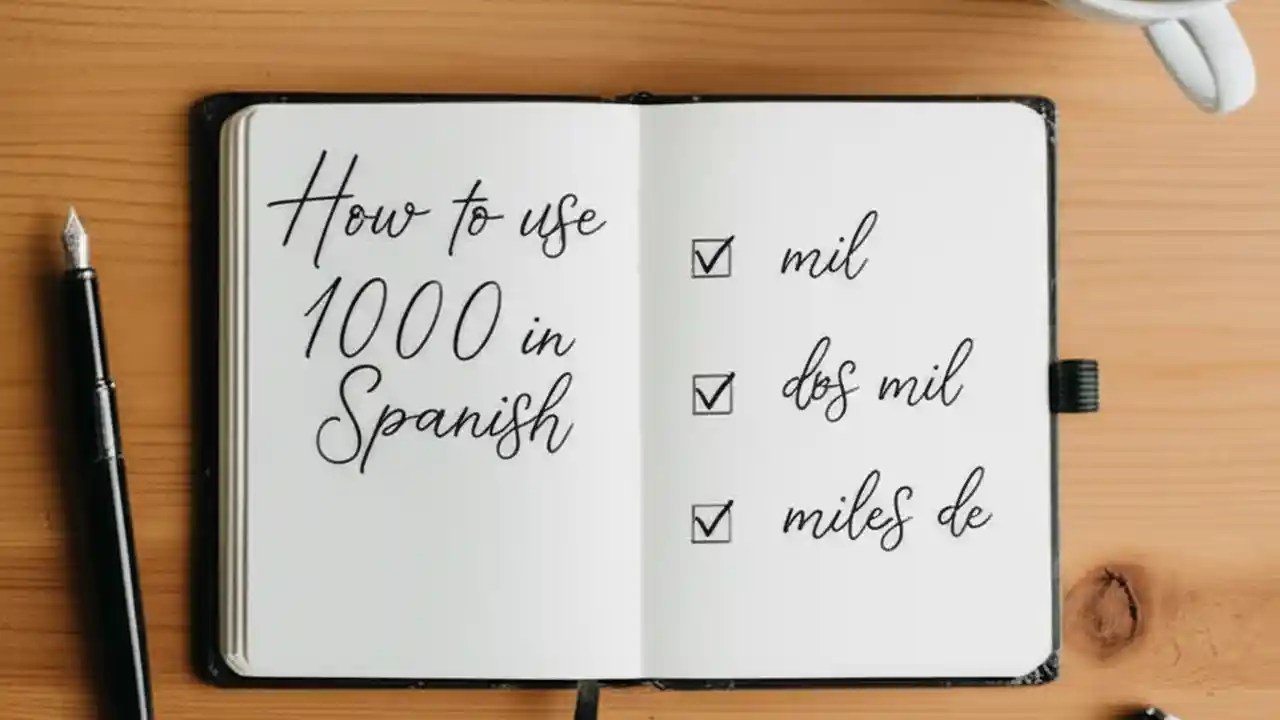 How to use
1000 in
Spanish
mil
dos mil
miles de